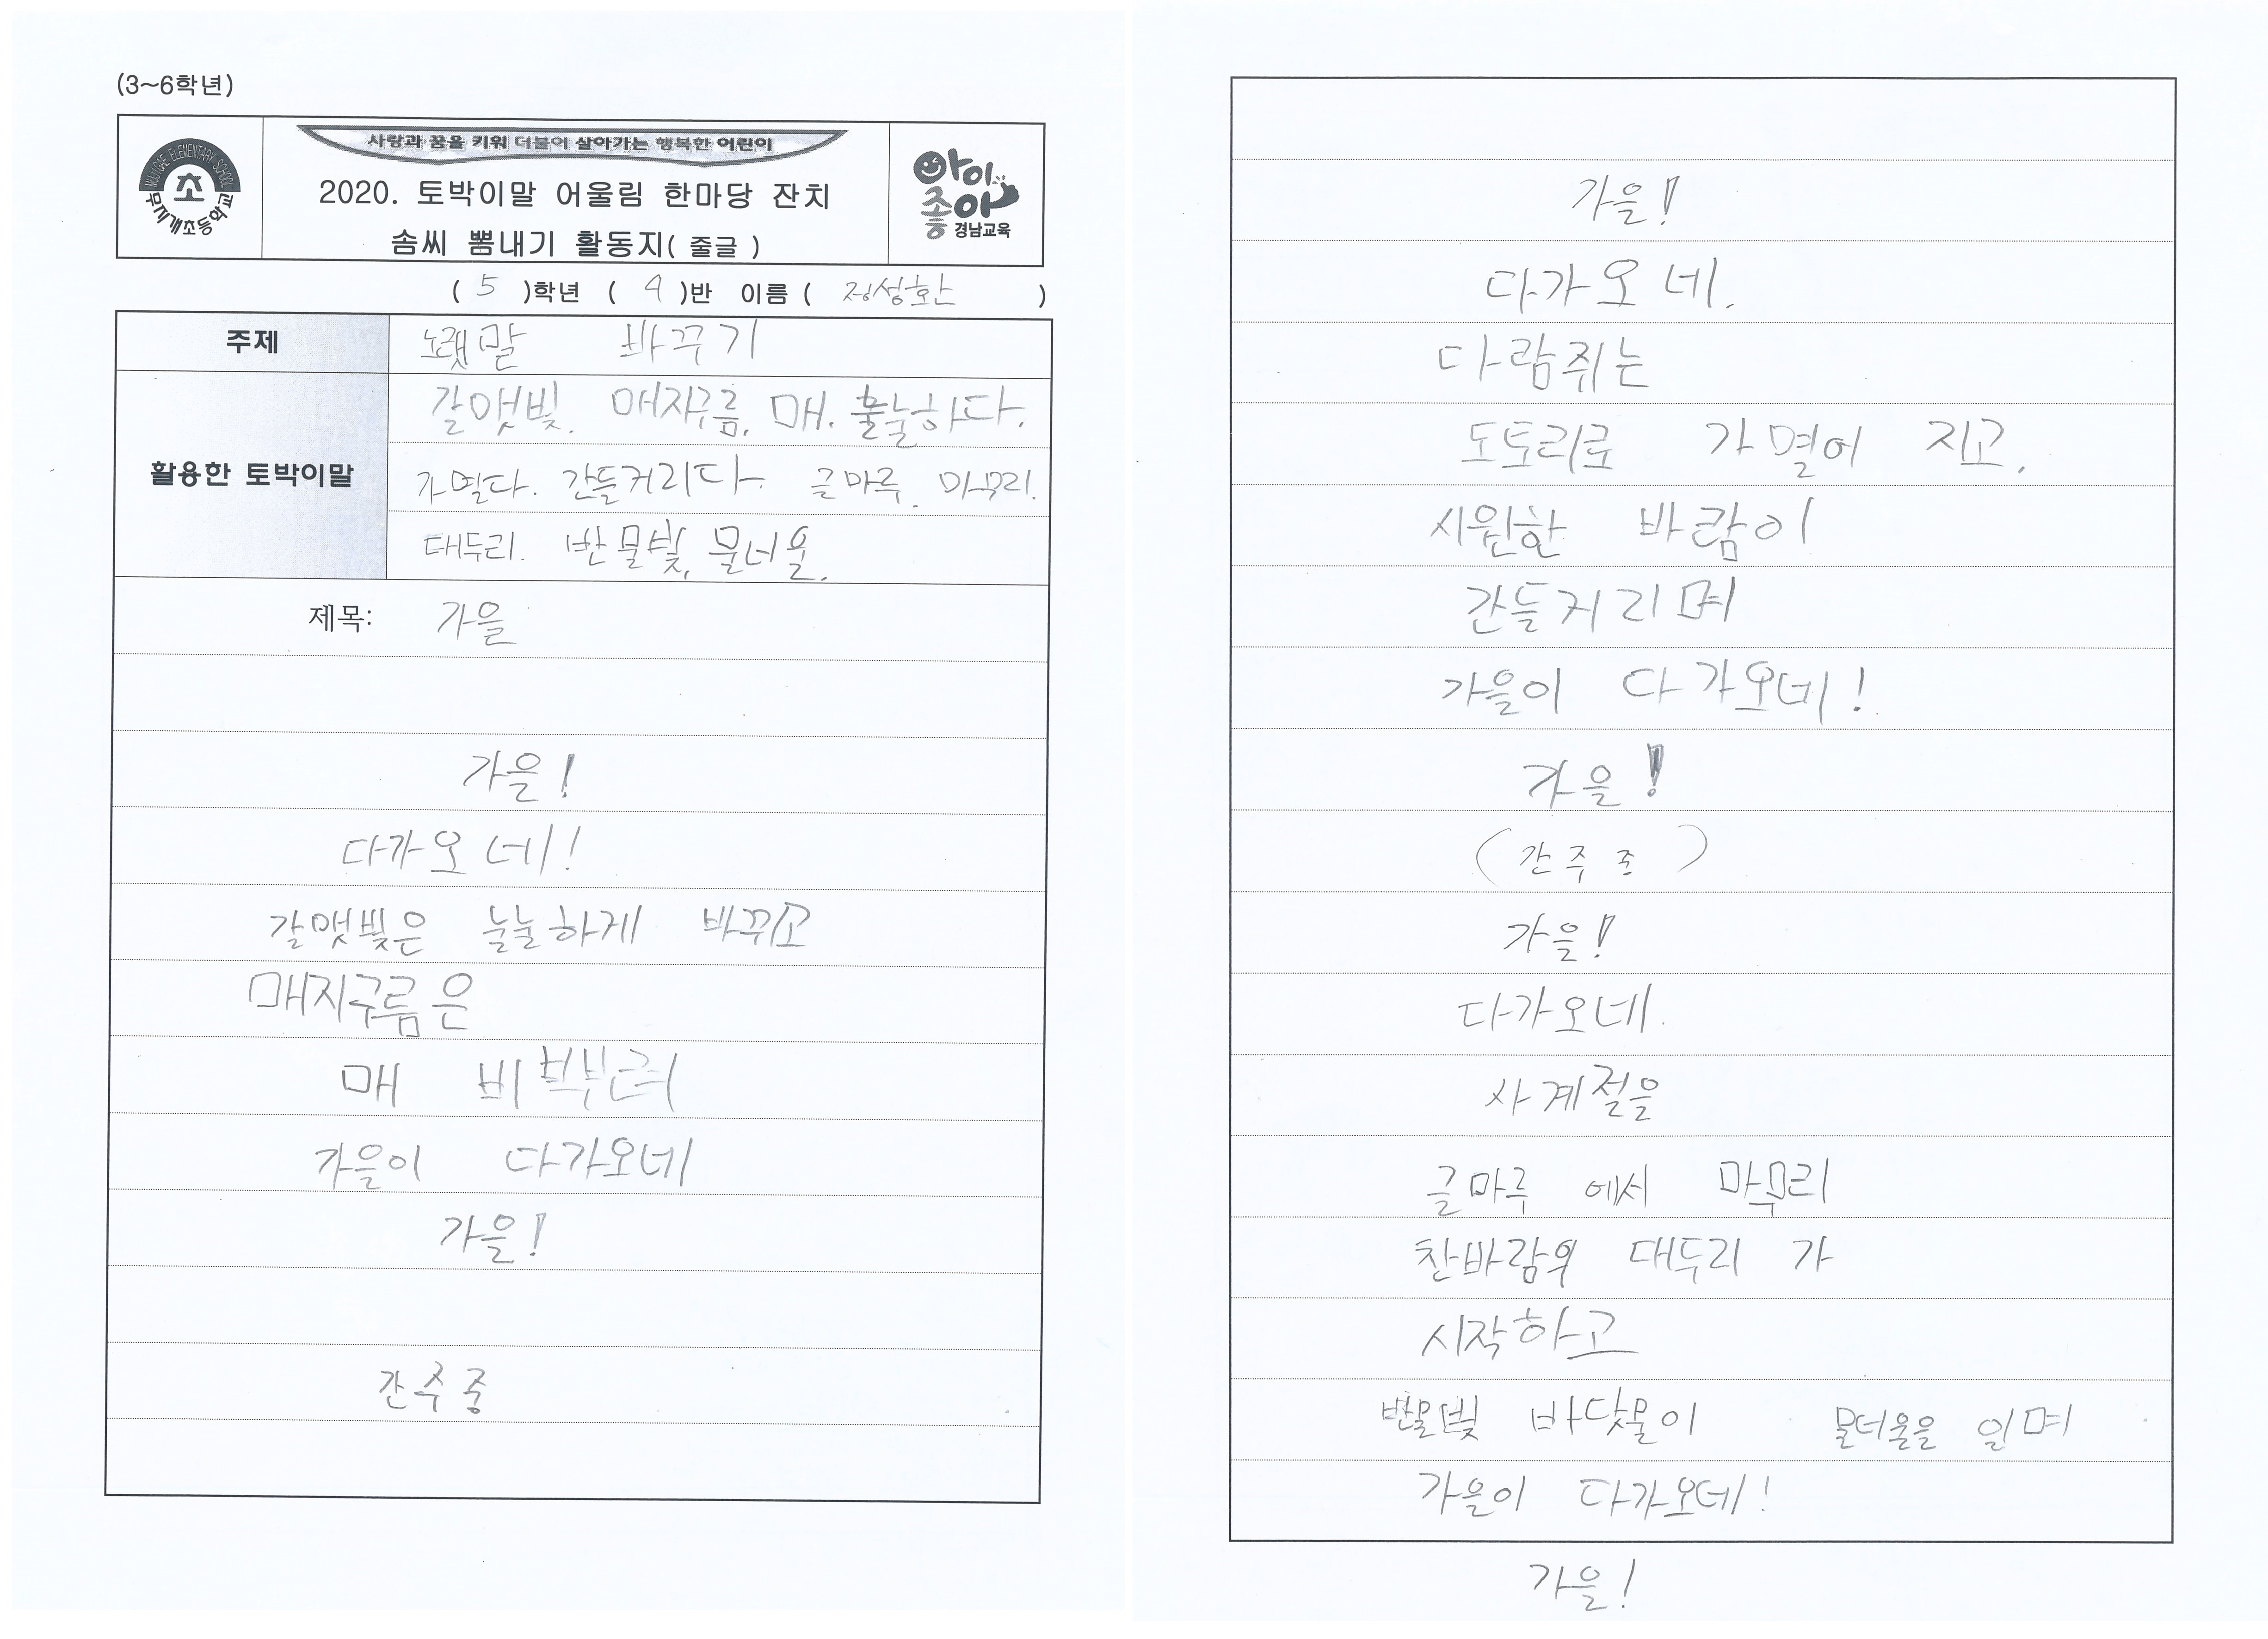 (3~6학년)
MUJIGAE ELEMENTARY SCHOOL
초
무지개초등학교
사랑과 꿈을 키워 더불어 살아가는 행복한 어린이
2020. 토박이말 어울림 한마당 잔치
솜씨 뽐내기 활동지( 줄글 )
아이좋아
경남교육
( 5 )학년 ( 4 )반 이름 ( 정성환 )
주제 노랫말 바꾸기
활용한 토박이말
갈맷빛. 매지구름. 매. 눌눌하다.
가멸다. 간들거리다. 글마루. 마무리.
대두리. 반물빛, 물너울.
제목: 가을
가을!
다가오네!
갈맷빛은 눌눌하게 바뀌고
매지구름은
매 비
가을이 다가오네
가을!
간주중
가을!
다가오네.
다람쥐는
도토리로 가멸어 지고,
시원한 바람이
간들거리며
가을이 다가오네!
가을!
(간주중)
가을!
다가오네.
사계절을
글마루 에서 마무리
찬바람의 대두리 가
시작하고
반물빛 바닷물이 물너울을 일며
가을이 다가오네!
가을!